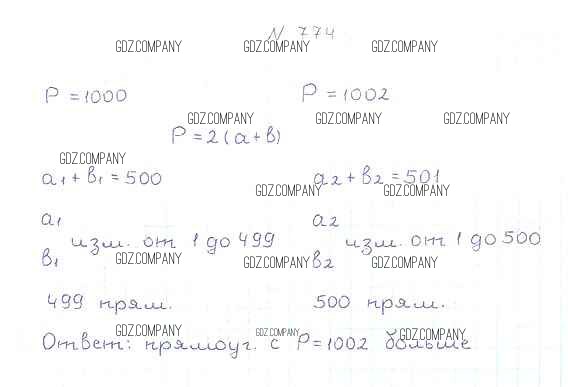 N 774
GDZ.COMPANY GDZ.COMPANY GDZ.COMPANY
P = 1000 P = 1002
GDZ.COMPANY GDZ.COMPANY GDZ.COMPANY
P = 2(a+b)
GDZ.COMPANY
a1 + b1 = 500 a2 + b2 = 501
GDZ.COMPANY GDZ.COMPANY
a1 a2
изм. от 1 до 499 изм. от 1 до 500
b1 b2
GDZ.COMPANY GDZ.COMPANY GDZ.COMPANY
499 прям. 500 прям.
GDZ.COMPANY GDZ.COMPANY GDZ.COMPANY
Ответ: прямоуг. с P = 1002 больше